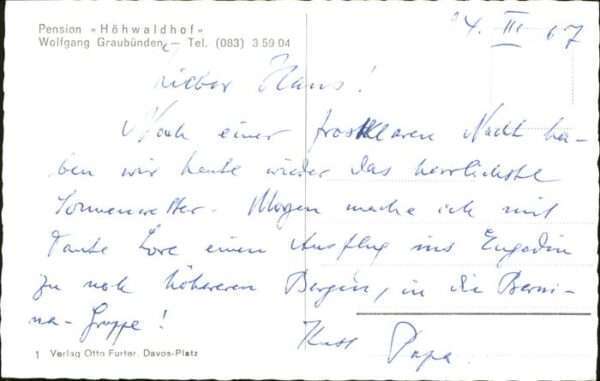 Pension »Höhwaldhof«
Wolfgang Graubünden – Tel. (083) 3 59 04
4. III 67
Lieber Hans!
Nach einer frostklaren Nacht ha-
ben wir heute wieder das herrlichste
Sonnenwetter. Morgen mache ich mit
Tante Lore einen Ausflug ins Engadin
zu noch höheren Bergen, in die Berni-
na-Gruppe!
Kuss Papa.
1 Verlag Otto Furter, Davos-Platz